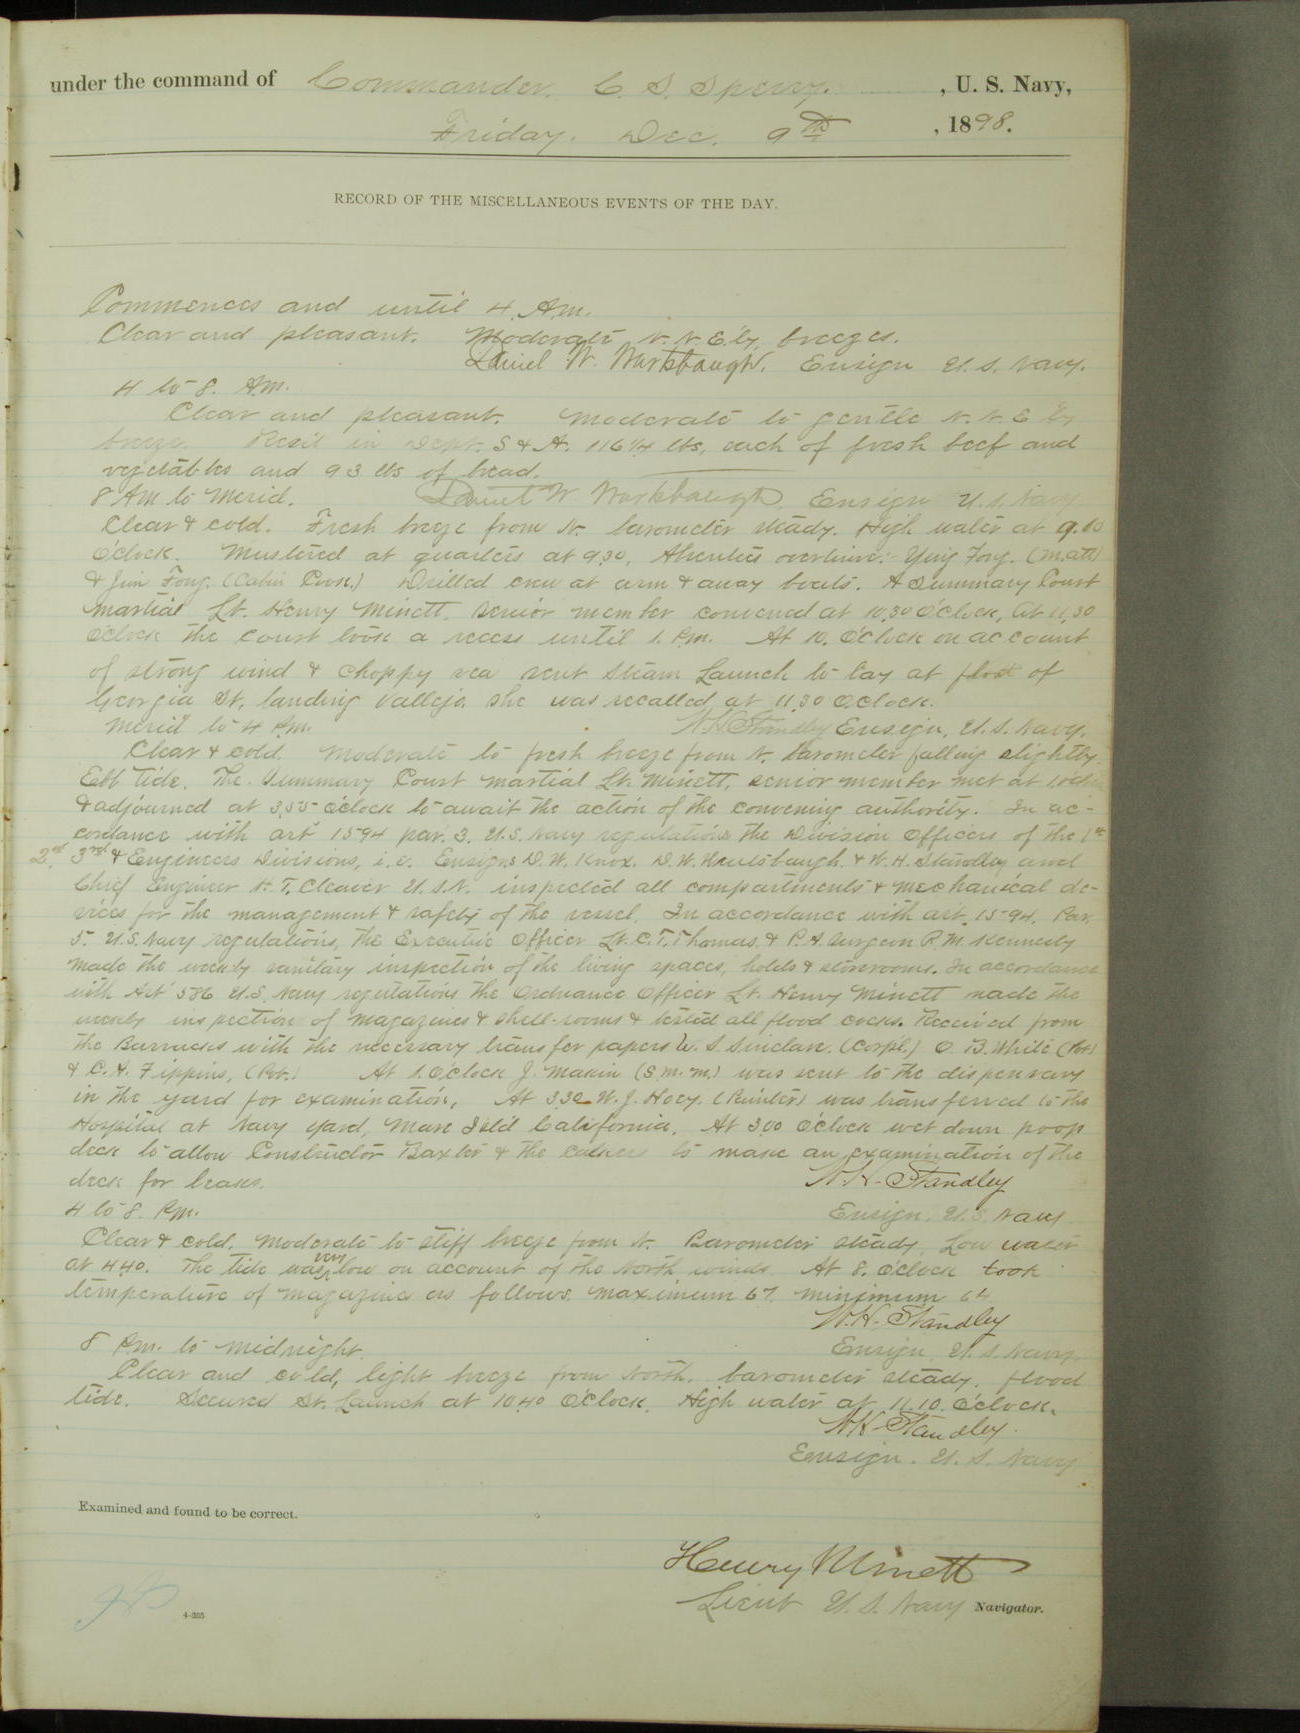 under the command of Commander. C. S. Sperry. , U. S. Navy,
Friday. Dec. 9th , 1898.
RECORD OF THE MISCELLANEOUS EVENTS OF THE DAY.
Commences and until 4. A.m.
Clear and pleasant. Moderate N. N. E'ly. breezes.
Daniel W. Wurtsbaugh. Ensign U. S. Navy.
4 to 8. A.m.
Clear and pleasant. Moderate to gentle N. N. E'ly
breeze. Rec'd in Dept. S & A. 116 1/4 lbs, each of fresh beef and
vegetables and 93 lbs of bread.
8 Am to Merid. Daniel W Wurtsbaugh Ensign U. S. Navy
Clear & cold. Fresh breeze from N. barometer steady. High water at 9.10
o'clock. Mustered at quarters at 9.30, Absentees overtime: Ying Fong. (M.att)
& Jim Fong. (Cabin Cook.) Drilled crew at arm & away boats. A Summary Court
martial Lt. Henry Minett. senior member convened at 10.30 O'clock, at 11.30
o'clock the court took a recess until 1. P.m. At 10. O'clock on account
of strong wind & choppy sea sent Steam Launch to lay at float of
Georgia St. landing Vallejo. she was recalled at 11.30 oclock.
Merid to 4 P.m. W.H. Standley Ensign, U. S. Navy.
Clear & cold. Moderate to fresh breeze from N. barometer falling slightly.
Ebb tide. The Summary Court martial Lt. Minett, senior member met at 1. o'clock
& adjourned at 3.55 o'clock to await the action of the convening authority. In ac-
cordance with art 1594 par. 3. U.S. Navy regulations the Division Officers of the 1st
2nd. 3rd & Engineers Divisions, i.e. Ensigns D. W. Knox. D. W. Wurtsbaugh. & W. H. Standley and
Chief Engineer H. T. Cleaver U.S.N. inspected all compartments & mechanical de-
vices for the management & safety of the vessel. In accordance with art. 1594. Par.
5. U.S. Navy regulations, the Executive Officer Lt. C. T. Thomas. & P. A. Surgeon R. M. Kennedy
made the weekly sanitary inspection of the living spaces, holds & storerooms. In accordance
with Art 536 U.S. Navy regulations the Ordnance Officer Lt. Henry Minett made the
weekly inspection of magazines & shell-rooms & tested all flood cocks. Received from
the Barracks with the necessary transfer papers W. S. Sinclair. (Corpl.) O. B. White (Pvt)
& C. A. Fippins, (Pvt.) At 1. O'clock J. Makin (S.m.m.) was sent to the dispensary
in the yard for examination, At 3.30 W. J. Hoey. (Printer) was transferred to the
Hospital at Navy Yard, Mare Isl'd California. At 3.00 O'clock wet down poop
deck to allow Constructor Baxter & the calkers to make an examination of the
deck for leaks. W. H. Standley
4 to 8. P.m. Ensign. U.S. Navy.
Clear & cold. Moderate to stiff breeze from N. Barometer steady. Low water
at 4.40. The tide was very low on account of the North winds. At 8. O'clock took
temperature of magazines as follows. maximum 67. minimum 64
W. H. Standley
8 P.m. to midnight. Ensign U. S. Navy.
Clear and cold, light breeze from North. barometer steady. flood
tide. Secured St. Launch at 10.40 O'clock. High water at 11.10. O'clock.
W. H. Standley.
Ensign. U. S. Navy
Examined and found to be correct.
Henry Minett
Lieut U. S. Navy Navigator.
4-205